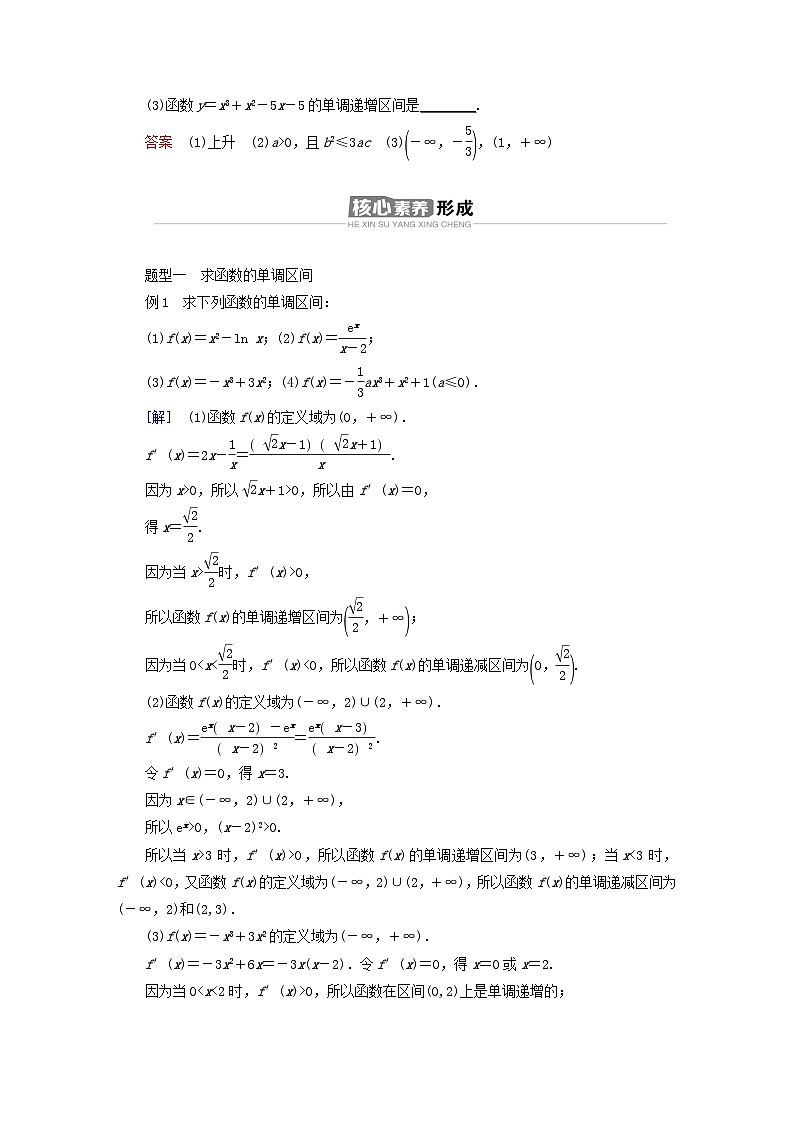 (3)函数y=x³+x²-5x-5的单调递增区间是________.
答案 (1)上升 (2)a>0,且b²≤3ac (3)(-∞,-5/3),(1,+∞)
核心素养 形成
HE XIN SU YANG XING CHENG
题型一 求函数的单调区间
例1 求下列函数的单调区间:
(1)f(x)=x²-ln x;(2)f(x)=eˣ/(x-2);
(3)f(x)=-x³+3x²;(4)f(x)=-1/3ax³+x²+1(a≤0).
[解] (1)函数f(x)的定义域为(0,+∞).
f′(x)=2x-1/x=(√2x-1)(√2x+1)/x.
因为x>0,所以√2x+1>0,所以由f′(x)=0,
得x=√2/2.
因为当x>√2/2时,f′(x)>0,
所以函数f(x)的单调递增区间为(√2/2,+∞);
因为当0<x<√2/2时,f′(x)<0,所以函数f(x)的单调递减区间为(0,√2/2).
(2)函数f(x)的定义域为(-∞,2)∪(2,+∞).
f′(x)=(eˣ(x-2)-eˣ)/(x-2)²=eˣ(x-3)/(x-2)².
令f′(x)=0,得x=3.
因为x∈(-∞,2)∪(2,+∞),
所以eˣ>0,(x-2)²>0.
所以当x>3时,f′(x)>0,所以函数f(x)的单调递增区间为(3,+∞);当x<3时,
f′(x)<0,又函数f(x)的定义域为(-∞,2)∪(2,+∞),所以函数f(x)的单调递减区间为
(-∞,2)和(2,3).
(3)f(x)=-x³+3x²的定义域为(-∞,+∞).
f′(x)=-3x²+6x=-3x(x-2).令f′(x)=0,得x=0或x=2.
因为当0<x<2时,f′(x)>0,所以函数在区间(0,2)上是单调递增的;